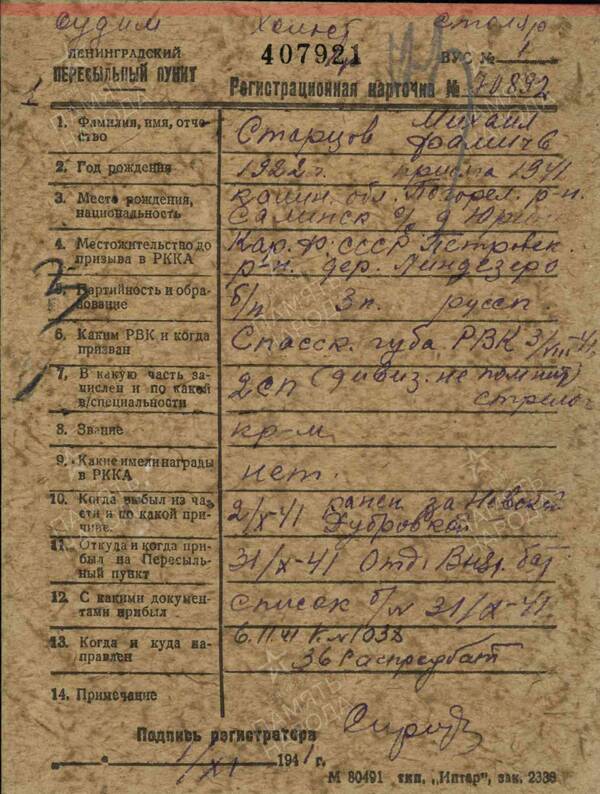 судим столяр
ЛЕНИНГРАДСКИЙ 407921 ВУС № 1
ПЕРЕСЫЛЬНЫЙ ПУНКТ Регистрационная карточка № 70892
1. Фамилия, имя, отчество Старцов Михаил
2. Год рождения 1922 г. призыв 1941
3. Место рождения, национальность Калин. обл. Погорел. р-н.
д.
4. Местожительство до призыва в РККА Кар. Ф. СССР Петровск.
р-н. дер. Линдезеро
5. Партийность и образование б/п 3п. русск.
6. Каким РВК и когда призван Спасск. губа. РВК 3/VIII-41
7. В какую часть зачислен и по какой в/специальности 2 сп (дивиз. не помнит)
стрелок
8. Звание кр-м.
9. Какие имели награды в РККА нет.
10. Когда выбыл из части и по какой причине 2/X-41 ранен за Невской
Дубровкой
11. Откуда и когда прибыл на Пересыльный пункт 31/X-41 Отд. Выз. бат
12. С какими документами прибыл список б/н 31/X-41
13. Когда и куда направлен 6.11.41 к. № 1038
36 Распредбат
14. Примечание
Подпись регистратора
1/XI 1941 г.
М 80491 тип. „Интер", зак. 2388
ПАМЯТЬ НАРОДА